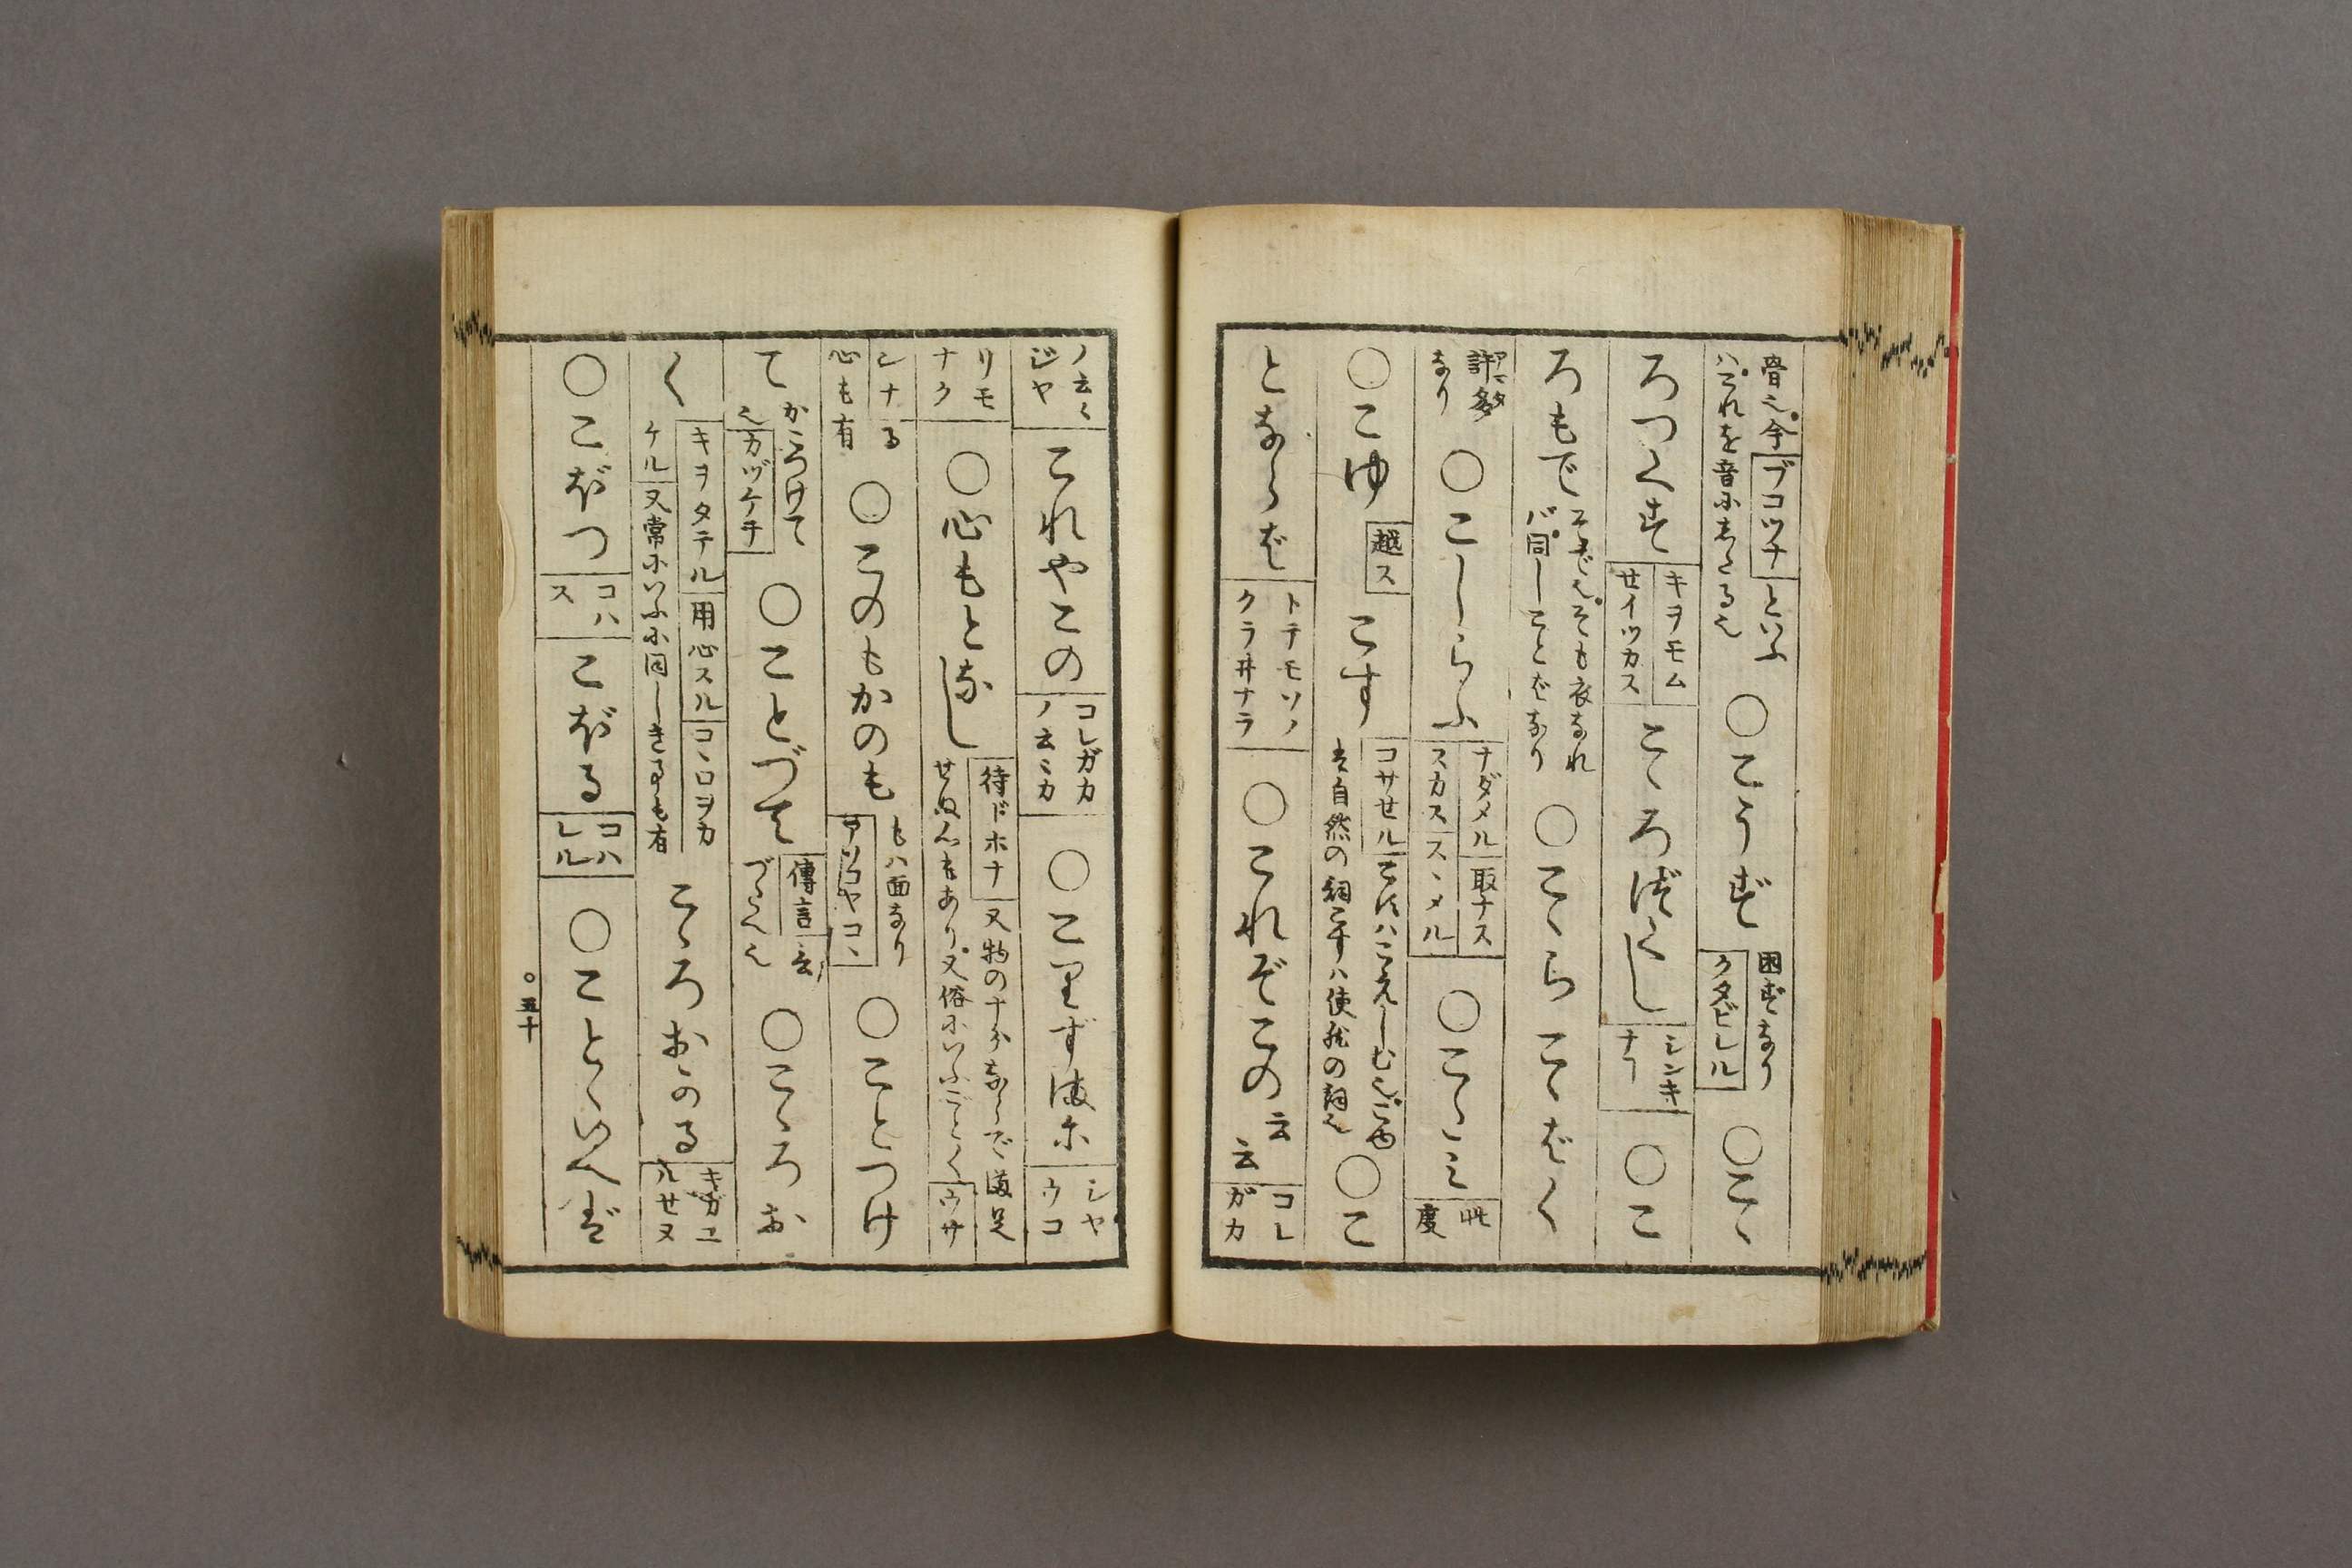 音也。今ブコツナといふ
ハこれを音にまさる也
○こうず
困ずなり
クタビレル
○こゝ
ろつくす
キヲモム
セイツカス
こゝろづくし
シンキ
ナリ
○こ
ろもで
そで也。そも衣なれ
バ。同しことばなり
○こゝら
こゝばく
許多
なり
○こしらふ
ナダメル 取ナス
スカス スヽメル
○こゝミ
此
度
○こゆ
越ス
こす
コサセル
自然の詞こすハ使然の詞也
○こ
とならば
トテモソノ
クラヰナラ
○これぞこの
云
云
コレ
ガカ
ノ云々
ジヤ
これやこの
コレガカ
ノ云々カ
○こりずまに
シヤ
ウコ
リモ
ナク
○心もとなし
待ドホナ
又物の十分ならで満足
せぬ心もあり。又俗にいふごとく
ウサ
ンナる
心も有
○このもかのも
もハ面なり
アソコヤコヽ
○ことつけ
て
かこつけて
也カヅケテ
○ことづて
傳言
○こゝろお
く
キヲタテル 用心スル コヽロヲカ
ケル 又常にいふに同しきるも有
こゝろおかる
キガユ
ルセヌ
○こぼつ
コハ
ス
こぼる
コハ
レル
○ことゝいへば
○五十